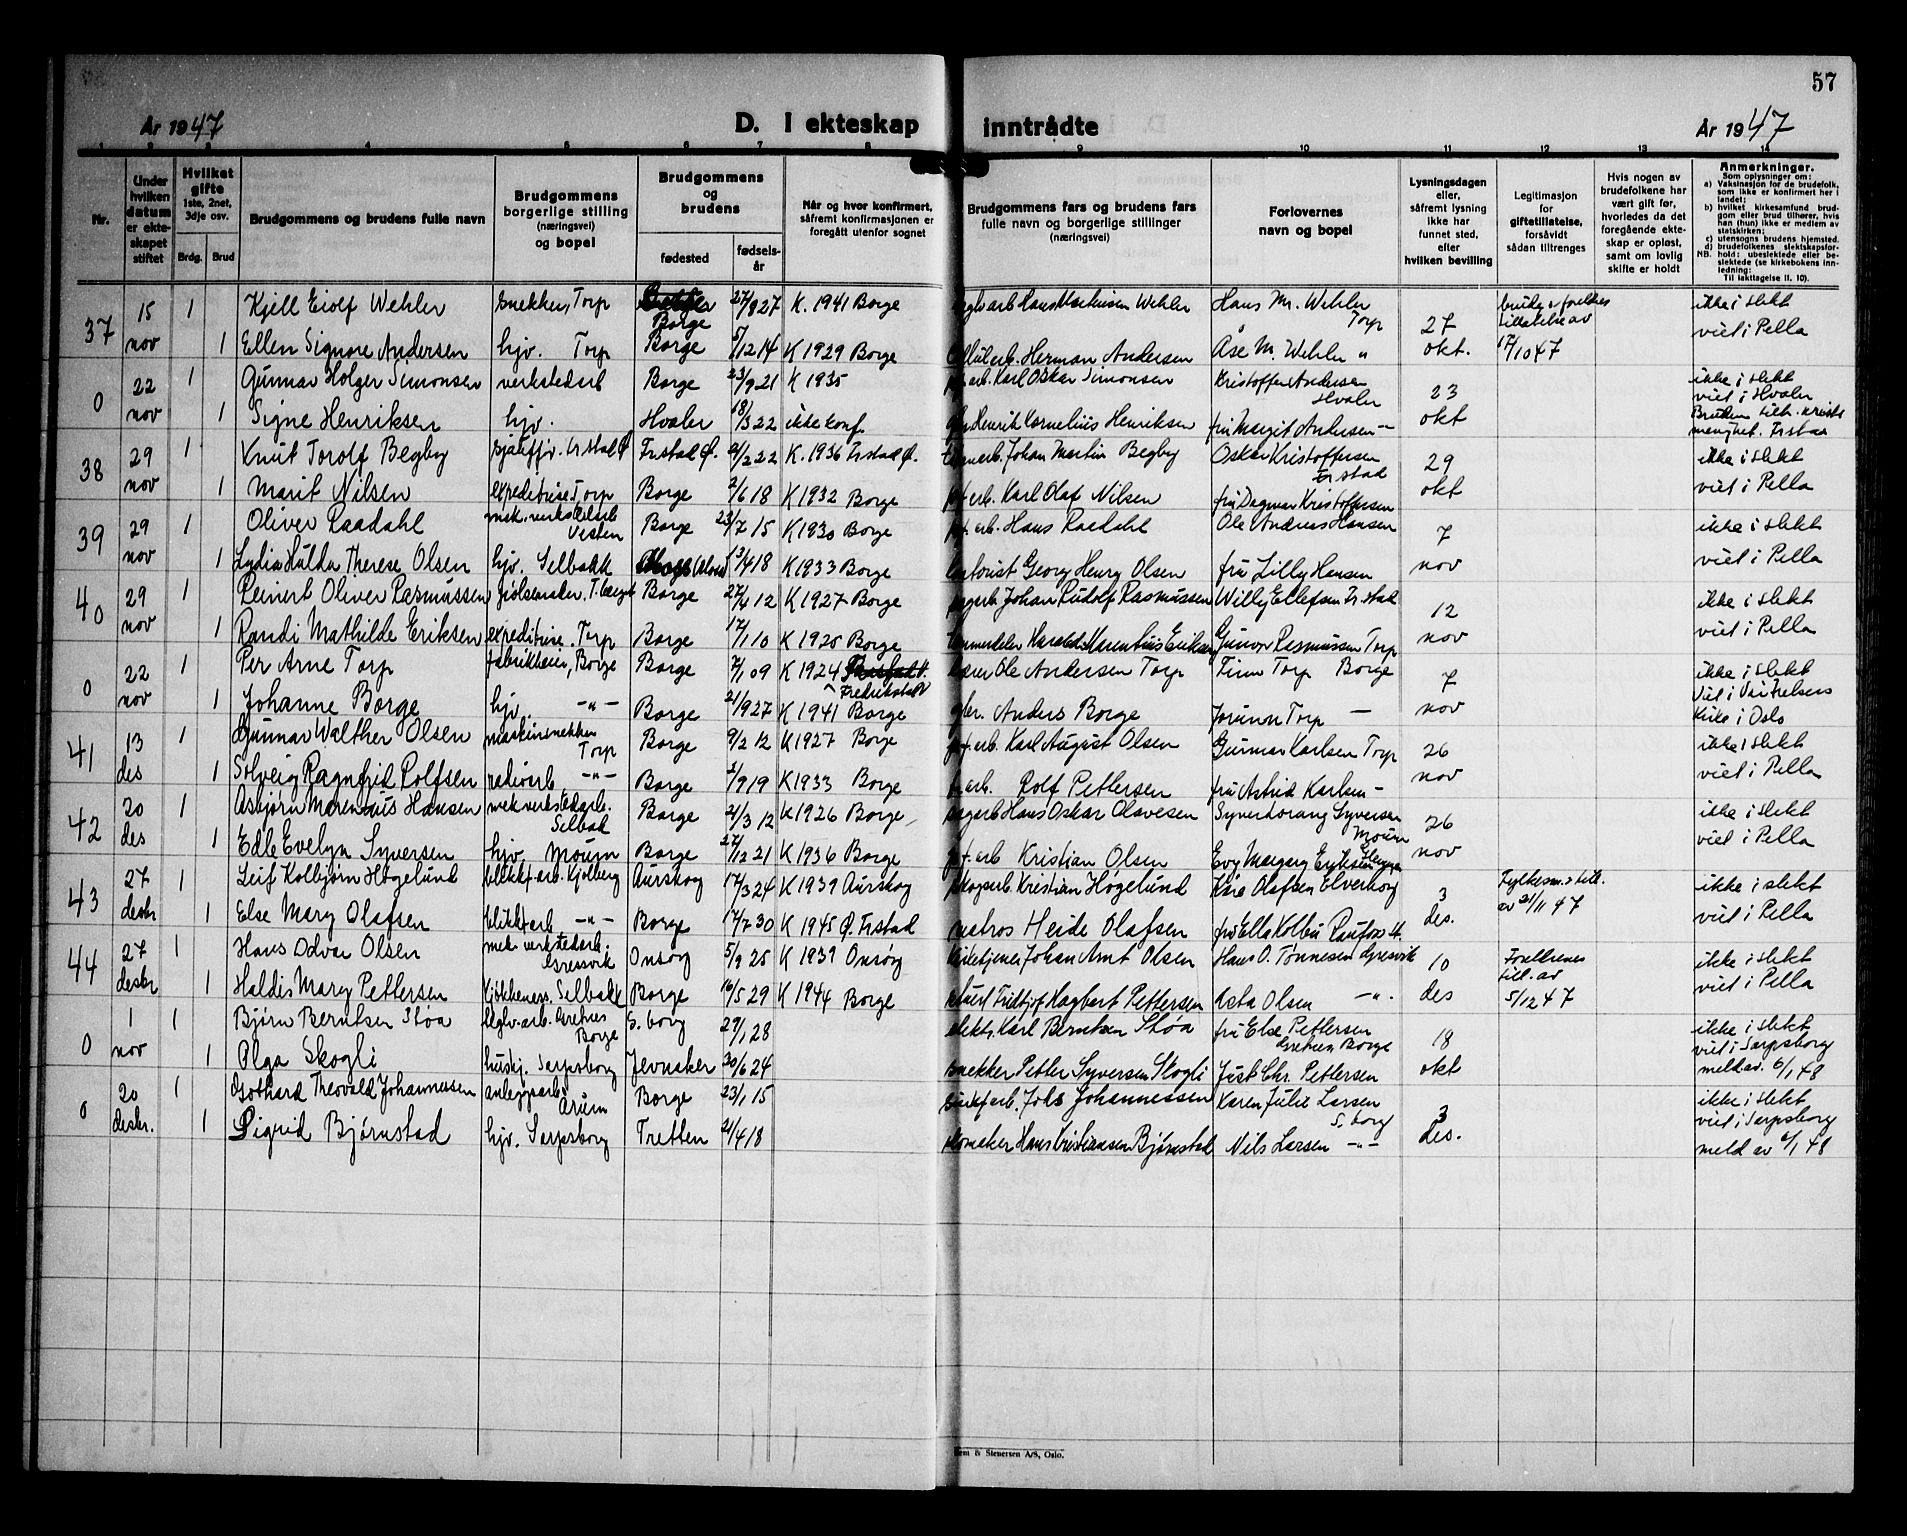 57
År 1947 D. I ekteskap inntrådte År 1947
1 2 3 4 5 6 7 8 9 10 11 12 13 14
Nr.
Under hvilken datum er ekteskapet stiftet
Hvilket gifte 1ste, 2net, 3dje osv.
Brdg. Brud
Brudgommens og brudens fulle navn
Brudgommens borgerlige stilling (næringsvei) og bopel
Brudgommens og brudens
fødested
fødselsår
Når og hvor konfirmert, såfremt konfirmasjonen er foregått utenfor sognet
Brudgommens fars og brudens fars fulle navn og borgerlige stillinger (næringsvei)
Forlovernes navn og bopel
Lysningsdagen eller, såfremt lysning ikke har funnet sted, efter hvilken bevilling
Legitimasjon for giftetillatelse, forsåvidt sådan tiltrenges
Hvis nogen av brudefolkene har vært gift før, hvorledes da det foregående ekteskap er opløst, samt om lovlig skifte er holdt
Anmerkninger.
Som oplysninger om:
a) Vaksinasjon for de brudefolk, som ikke er konfirmert her i landet;
b) hvilket kirkesamfund brudgom eller brud tilhører, hvis han (hun) ikke er medlem av statskirken;
c) utensogns brudens hjemsted.
d) brudefolkenes slektskapsforhold: ubeslektede eller beslektede (se kirkebokens innledning:
NB. Til iakttagelse II. 10).
37 15 nov 1 Kjell Eiolf Wehler snekker, Torp Borge 27/8 27 K. 1941 Borge arb Hans Markusen Wehler Hans M. Wehler Torp 27 okt. ikke i slekt
1 Ellen Signore Andersen hjv. Torp Borge /12 14 K 1929 Borge Herman Andersen Åse M. Wehler " 17/10 47 viet i Pella
0 22 nov 1 Gunnar Holger Simonsen verkstedarb Borge 23/9 21 K 1935 arb. Karl Oskar Simonsen Kristoffer Andersen Hvaler 23 okt ikke i slekt viet i Hvaler
1 Signe Henriksen hjv. Hvaler 18/3 22 ikke konf. Henrik Kornelius Henriksen fru Margit Andersen — Bruden
38 29 nov 1 Knut Torolf Begby Fr.stad Ø. /2 22 K. 1936 Fr.stad Ø. Johan Martin Begby Oskar Kristoffersen Fr stad 29 okt ikke i slekt
1 Marit Nilsen expeditrise. Torp Borge 2/6 18 K 1932 Borge arb. Karl Olaf Nilsen fru Dagmar Kristoffersen viet i Pella
39 29 nov 1 Oliver Raadahl mek. verkstedarb Vesten Borge 23/7 15 K 1930 Borge arb. Hans Raadahl Ole Andreas Hansen 7 nov ikke i slekt
1 Lydia Hulda Therese Olsen hjv. Selbakk 13/4 18 K 1933 Borge Georg Henry Olsen fru Lilly Hansen viet i Pella
40 29 nov 1 Reinert Oliver Rasmussen Borge 27/4 12 K 1927 Borge Johan Rudolf Rasmussen Willy Ellefsen Fr.stad 12 nov ikke i slekt
1 Randi Mathilde Eriksen expeditrise. Torp Borge 17/1 10 K 1925 Borge Harald Marentius Eriksen Gunvor Rasmussen Torp viet i Pella
0 22 nov 1 Per Arne Torp Borge 7/1 09 K 1924 Fredrikstad V Ole Andersen Torp Finn Torp Borge 7 nov ikke i slekt
1 Johanne Borge hjv —"— Borge 21/9 27 K 1941 Borge gbr. Anders Borge Jorunn Torp — Kirke i Oslo
41 13 des 1 Gunnar Walther Olsen maskinsnekker Torp Borge 9/2 12 K 1927 Borge arb. Karl August Olsen Gunnar Karlsen Torp 26 nov ikke i slekt
1 Solveig Ragnfrid Rolfsen —"— Borge 2/9 19 K 1933 Borge arb. Rolf Pettersen fru Astrid Karlsen — viet i Pella
42 20 des 1 Asbjørn Marensius Hansen mek verkstedarb. Selbak Borge 21/3 12 K 1926 Borge Hans Oskar Olavesen Syver Mourn 26 nov ikke i slekt
1 Edle Evelyn Syversen hjv. Moum Borge 27/12 21 K 1936 Borge arb Kristian Olsen Evy Margarg Eriksen viet i Pella
43 27 desbr 1 Leif Kolbjørn Høgelund blikkf.arb. Kjølberg Aurskog 17/3 24 K 1939 Aurskog skogsarb. Kristian Høgelund Kåre Olafsen Elverhøy 3 des. Fylkesm.s till. av 21/11 47 ikke i slekt
1 Else Mary Olafsen blikkf.arb —"— Borge 17/7 30 K 1945 Ø. Fr.stad matros Heide Olafsen fru Ella Kolbu Raufoss viet i Pella
44 27 desbr 1 Hans Odvar Olsen mek verkstedarb. Gressvik Onsøy 5/9 25 K 1939 Onsøy Johan Arnt Olsen Hans O. Tønnesen Gresvik 10 des Foreldrenes till. av ikke i slekt
1 Haldis Mary Pettersen Selbakk Borge 16/5 29 K 1944 Borge Fridtjof Hagbart Pettersen Asta Olsen —"— 5/12 47 viet i Pella
0 1 nov 1 Bjørn Berntsen Støa Borge S.borg 29/1 28 Karl Berntsen Støa fru Else Pettersen Borge 18 okt ikke i slekt
1 Olga Skogli hushj. Sarpsborg Jevnaker 30/6 24 Snekker Petter Syversen Skogli Just Chr. Pettersen viet i Sarpsborg meld av. 6/1 48
0 20 desbr. 1 Gothard Theovald Johannessen anleggsarb Årum Borge 23/1 15 Johs Johannessen Karen Julie Larsen S. borg 3 des. ikke i slekt
1 Sigrid Bjørnstad hjv. Sarpsborg Tretten 21/4 18 skomaker Hans Kristiansen Bjørnstad Nils Larsen —"— viet i Sarpsborg meld av 6/1 48
& Stenersen A/S, Oslo.